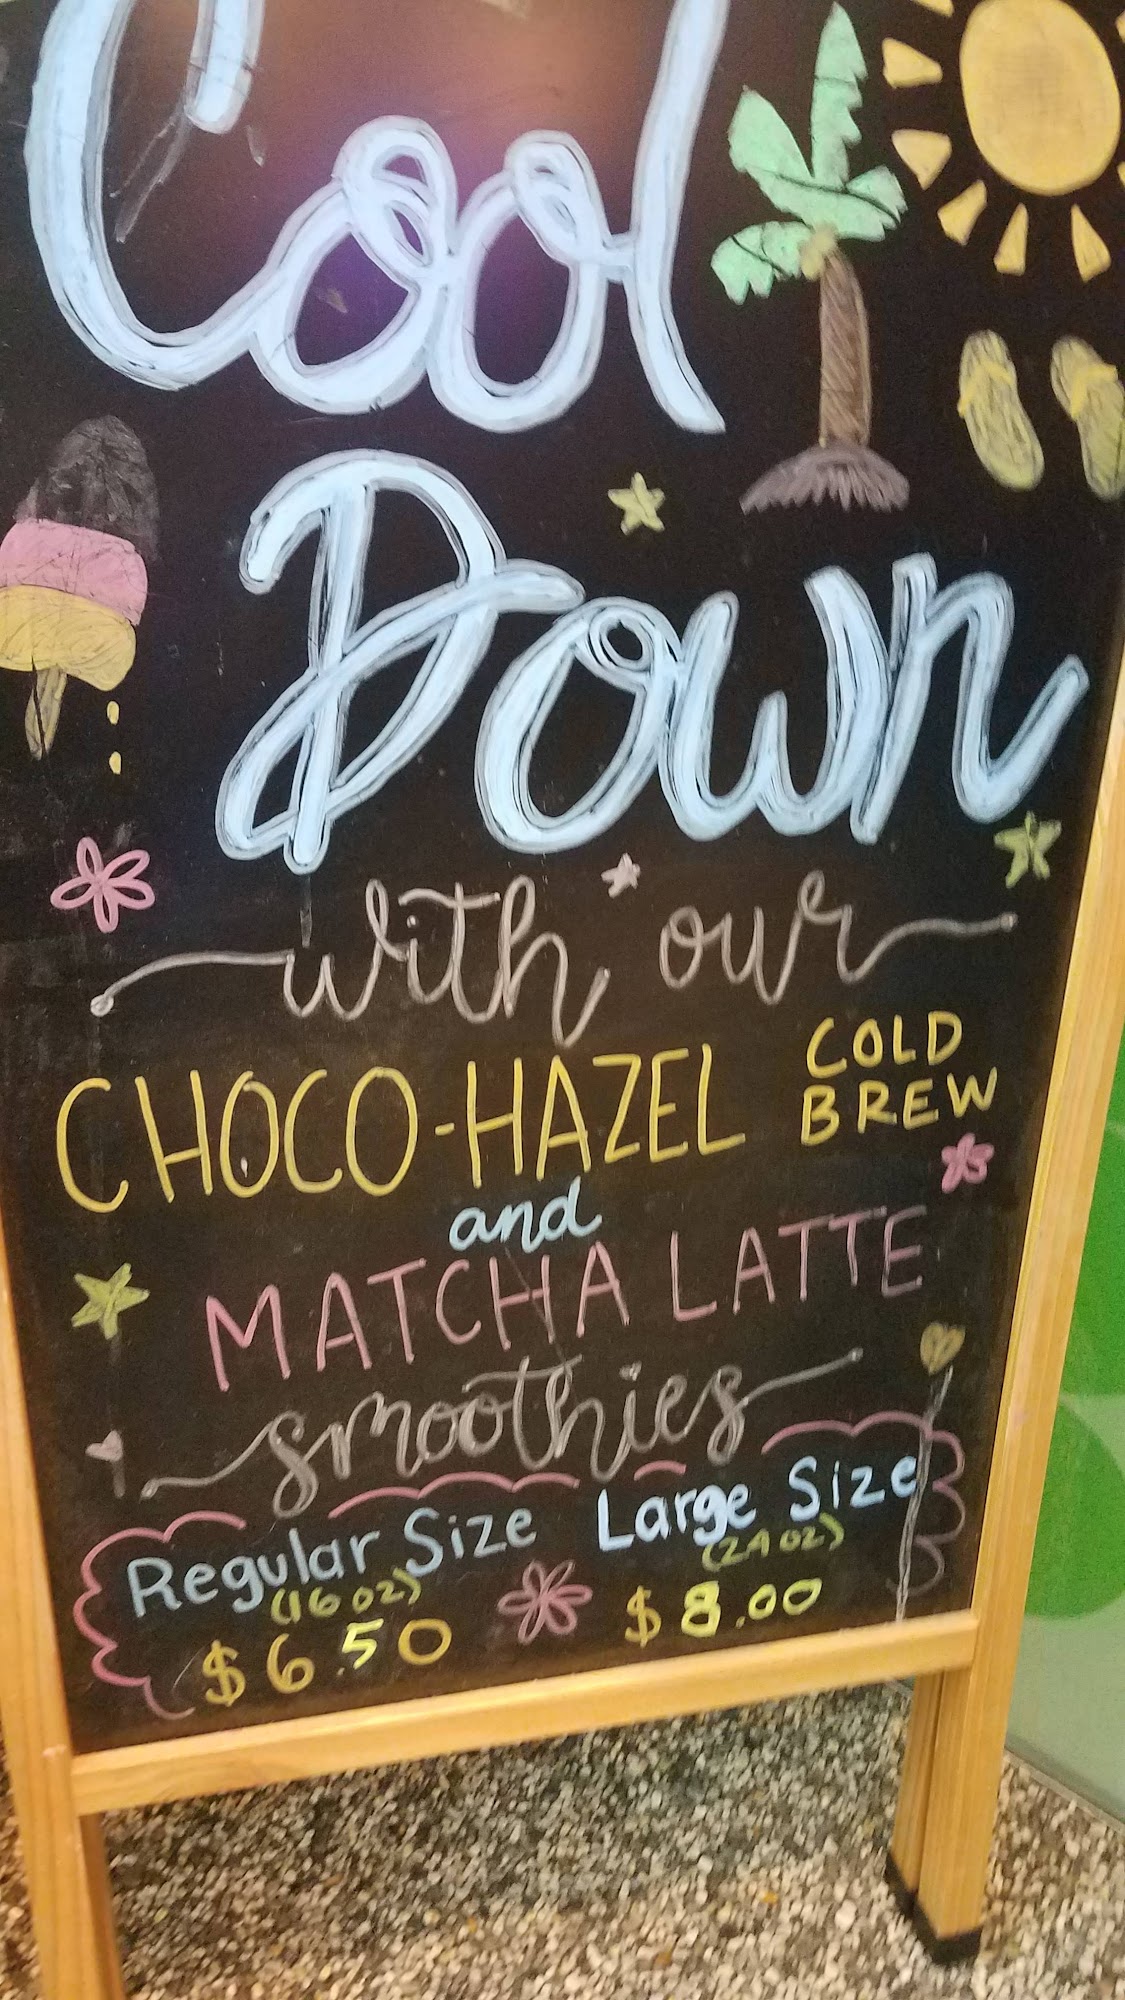 Cool
Down
with our
CHOCO-HAZEL COLD BREW
and
MATCHA LATTE
smoothies
Regular Size Large Size
(16 oz) (24 oz)
$6.50 $8.00